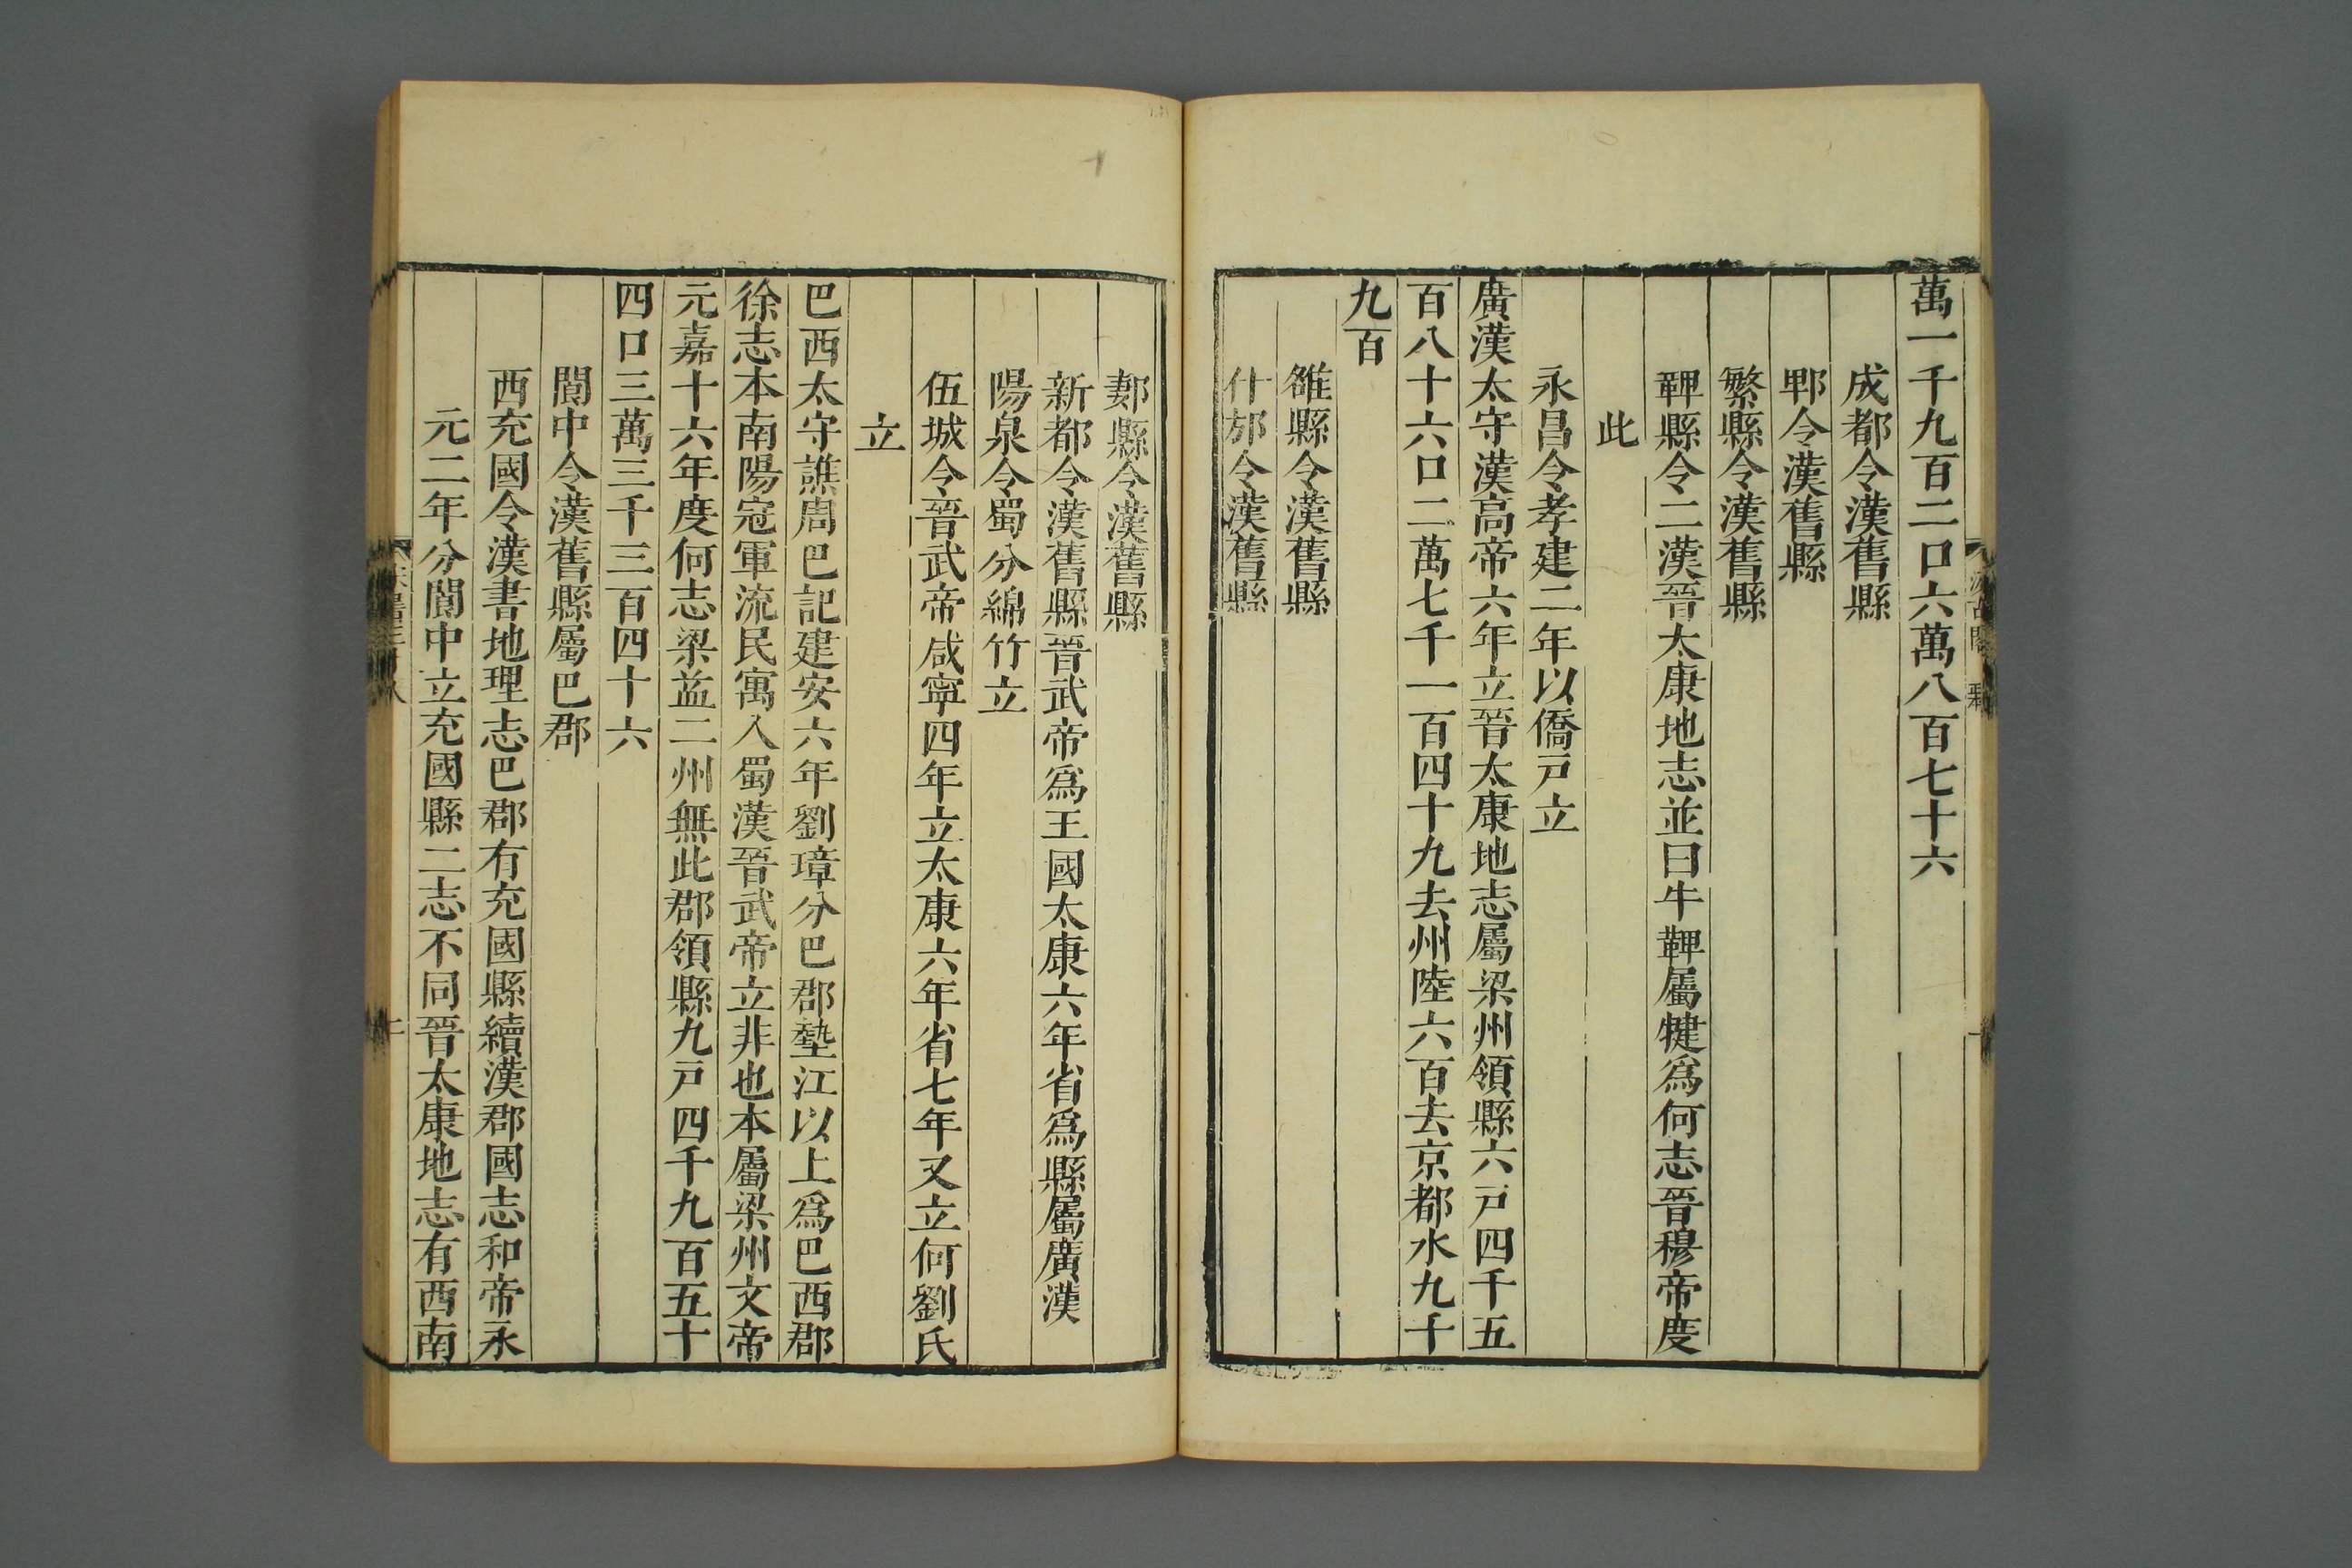 萬一千九百二口六萬八百七十六
成都令漢舊縣
郫令漢舊縣
繁縣令漢舊縣
鞞縣令二漢晉太康地志並曰牛鞞屬犍爲何志晉穆帝度
此
永昌令孝建二年以僑戸立
廣漢太守漢高帝六年立晉太康地志屬梁州領縣六戸四千五
百八十六口二萬七千一百四十九去州陸六百去京都水九千
九百
雒縣令漢舊縣
什邡令漢舊縣
郪縣令漢舊縣
新都令漢舊縣晉武帝爲王國太康六年省爲縣屬廣漢
陽泉令蜀分綿竹立
伍城令晉武帝咸寧四年立太康六年省七年又立何劉氏
立
巴西太守譙周巴記建安六年劉璋分巴郡墊江以上爲巴西郡
徐志本南陽冦軍流民寓入蜀漢晉武帝立非也本屬梁州文帝
元嘉十六年度何志梁益二州無此郡領縣九戸四千九百五十
四口三萬三千三百四十六
閬中令漢舊縣屬巴郡
西充國令漢書地理志巴郡有充國縣續漢郡國志和帝永
元二年分閬中立充國縣二志不同晉太康地志有西南